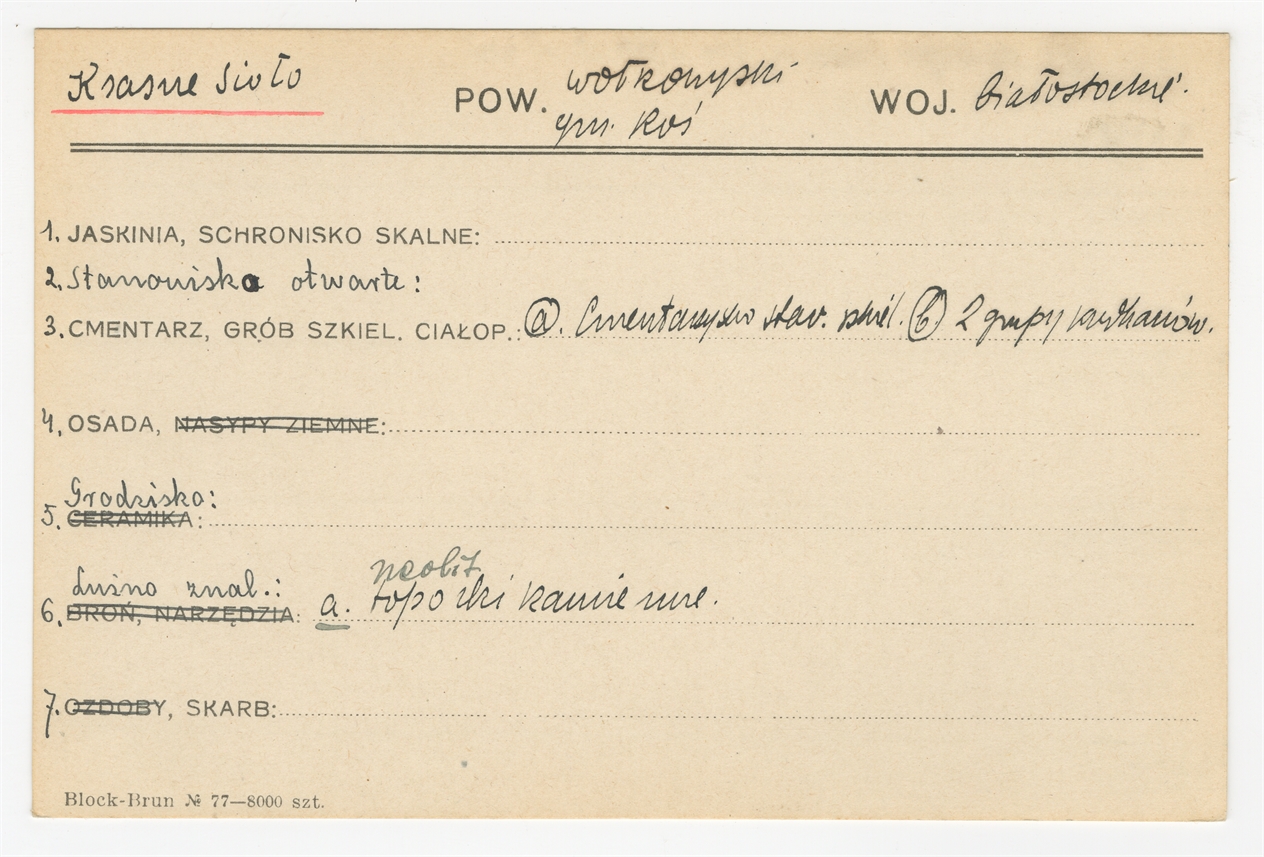 Krasne Sioło POW. wołkowyski WOJ. białostockie.
gm. Roś
1. JASKINIA, SCHRONISKO SKALNE:
2. Stanowiska otwarte:
3. CMENTARZ, GRÓB SZKIEL. CIAŁOP.: a. Cmentarzysko staw. szkiel. b) 2 grupy kurhanów.
4. OSADA, NASYPY ZIEMNE:
Grodzisko:
5. CERAMIKA:
neolit
Luźno znal.:
6. BROŃ, NARZĘDZIA: a. toporki kamienne.
7. OZDOBY, SKARB:
Block-Brun № 77—8000 szt.